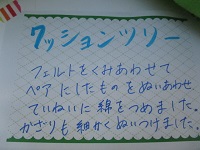 クッションツリー
フェルトをくみあわせて
ペアにしたものをぬいあわせ
ていねいに綿をつめました。
かざりも細かくぬいつけました。